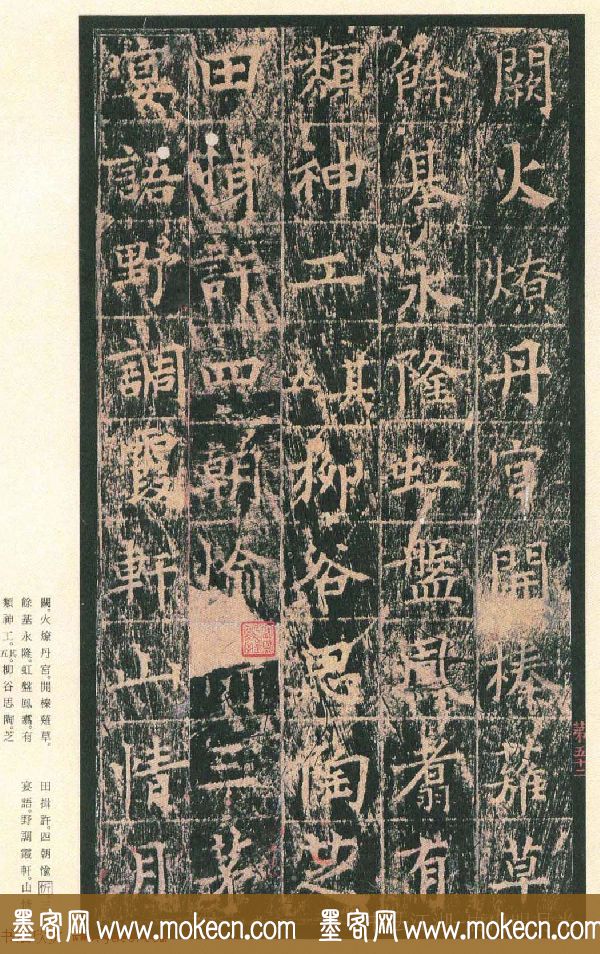 闕火燎丹宮開榛薙草
餘基永隆虹盤鳳翥有
類神工其五柳谷思陶芝
田揖許四朝愉 三茗
宴語野調霞軒山情月
第五十二
闕。火燎丹宮。開榛薙草。
餘基永隆。虹盤鳳翥。有
類神工。其五。柳谷思陶。芝
田揖許。四朝愉
宴語。野調霞軒。山
墨客网 www.mokecn.com 墨客网 www.mokecn.com